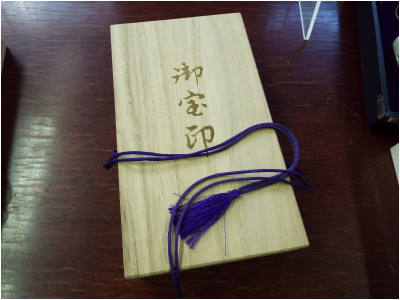 御宝印